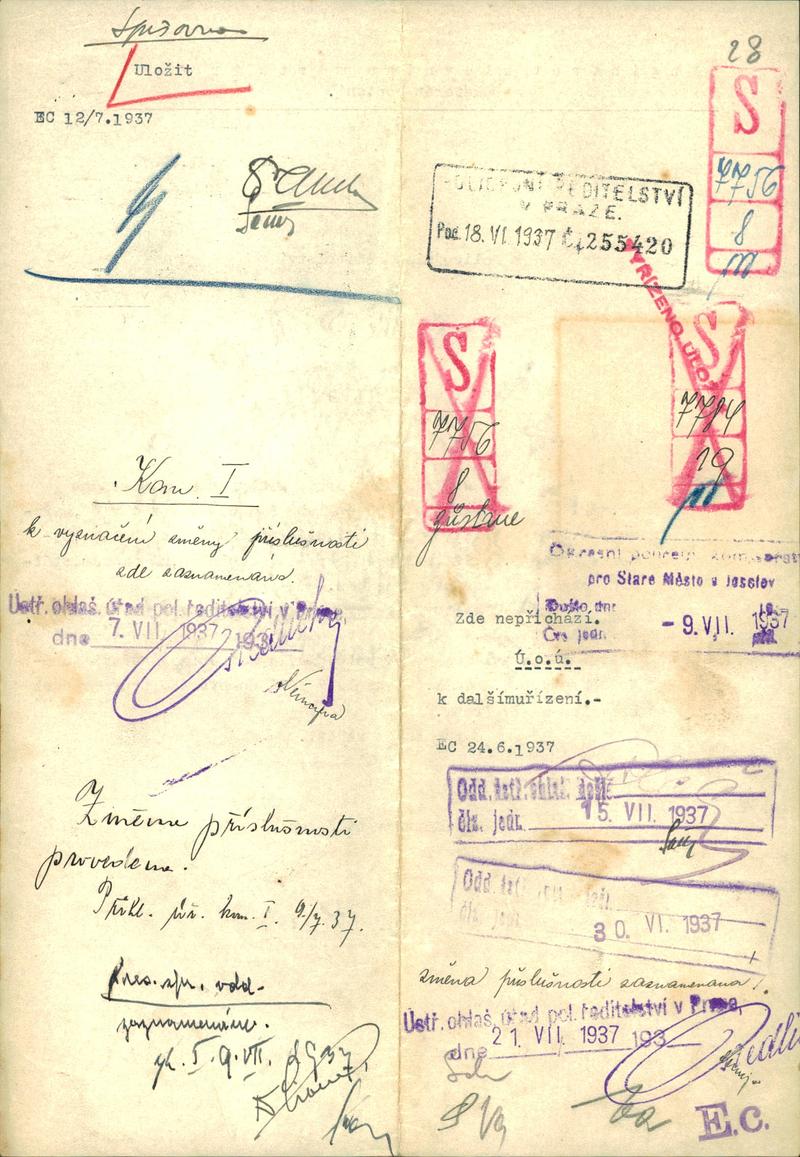 Spisovna
Uložit
EC 12/7.1937
Kom. I
k vyznačení změny příslušnosti
zde zaznamenáno.
Ústř. ohlaš. úřad pol. ředitelství v Praze,
dne 7. VII. 1937 193
Změna příslušnosti
provedena.
Přihl. úř. kom. I. 9/7. 37.
Pres. spr. odd.
zaznamenáno.
I. 9. VII. 1937
28
S
7756
8
POLICEJNÍ ŘEDITELSTVÍ
V PRAZE.
Pod. 18. VI. 1937 Č. 255420
VYŘÍZENO, ULOŽ
S
7756
8
zůstane
S
7784
19
Okresní policejní komisařství
pro Staré Město a Josefov
Došlo dne - 9. VII. 1937
Čís. jedn.
Zde nepřichází.
Ú.o.ú.
k dalšímuřízení.-
EC 24.6.1937
Odd. ústř. ohlaš. došlo
čís. jedn. 15. VII. 1937
Odd. úst
čís. jedn. 30. VI. 1937
změna příslušnosti zaznamenána!
Ústř. ohlaš. úřad pol. ředitelství v Praze,
dne 21. VII. 1937 193
E.C.